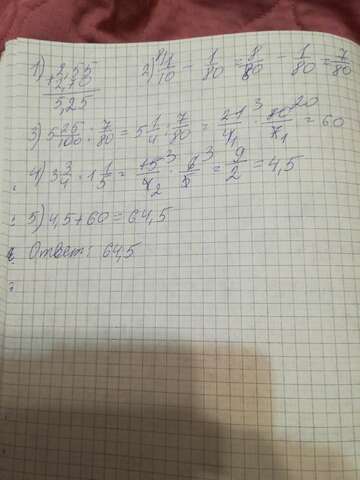 1) 2,55
+2,70
5,25
2) ⁸⁾1/10 - 1/80 = 8/80 - 1/80 = 7/80
3) 5 25/100 : 7/80 = 5 1/4 : 7/80 = 21³/4₁ · 80²⁰/7₁ = 60
4) 3 3/4 · 1 1/5 = 15³/4₂ · 6³/5 = 9/2 = 4,5
5) 4,5+60=64,5
Ответ: 64,5